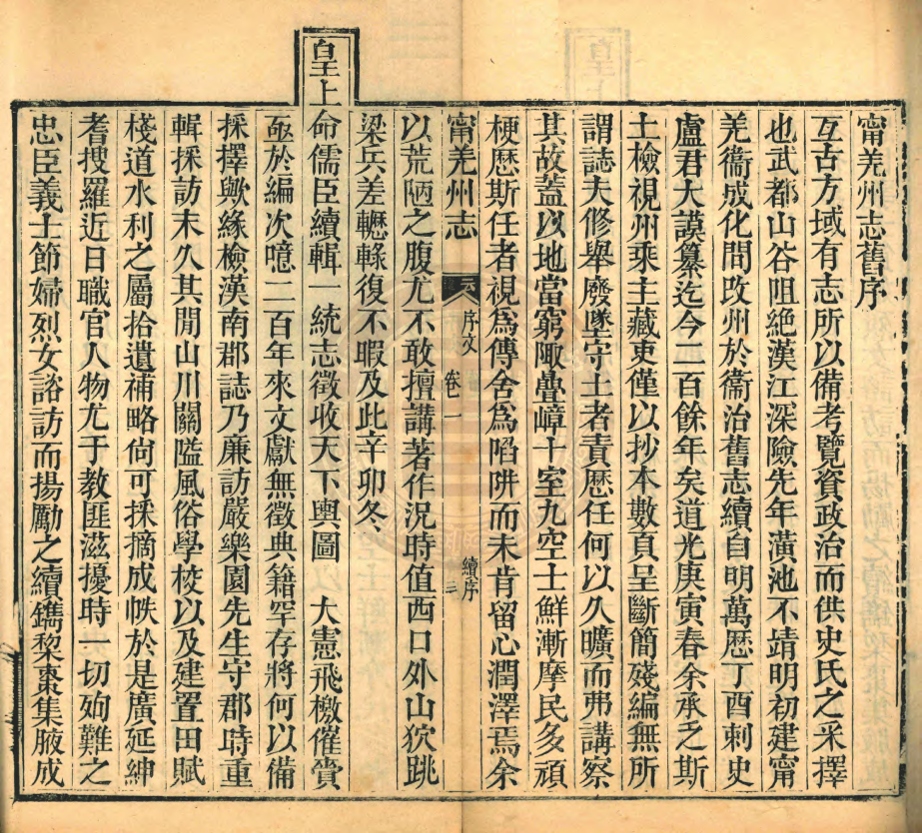 甯羌州志舊序
互古方域有志所以備考覽資政治而供史氏之采擇
也武都山谷阻絕漢江深險先年潢池不靖明初建甯
羌衞成化間改州於衞治舊志續自明萬歷丁酉刺史
盧君大謨纂迄今二百餘年矣道光庚寅春余承乏斯
土檢視州乘主藏吏僅以抄本數頁呈斷簡殘編無所
謂誌夫修舉廢墜守土者責歷任何以久曠而弗講察
其故葢以地當窮陬疊嶂十室九空士鮮漸摩民多頑
梗歷斯任者視為傳舍為陷阱而未肯留心潤澤焉余
甯羌州志 序文 卷一 續序 三
以荒陋之腹尤不敢擅講著作況時值西口外山狄跳
梁兵差轣轆復不暇及此辛卯冬
皇上命儒臣續輯一統志徵收天下輿圖 大憲飛檄催賫
亟於編次噫二百年來文獻無徵典籍罕存將何以備
採擇歟緣檢漢南郡誌乃廉訪嚴樂園先生守郡時重
輯採訪未久其間山川關隘風俗學校以及建置田賦
棧道水利之屬拾遺補略尙可採摘成帙於是廣延紳
耆搜羅近日職官人物尤于教匪滋擾時一切殉難之
忠臣義士節婦烈女諮訪而揚勵之續鐫棃棗集腋成